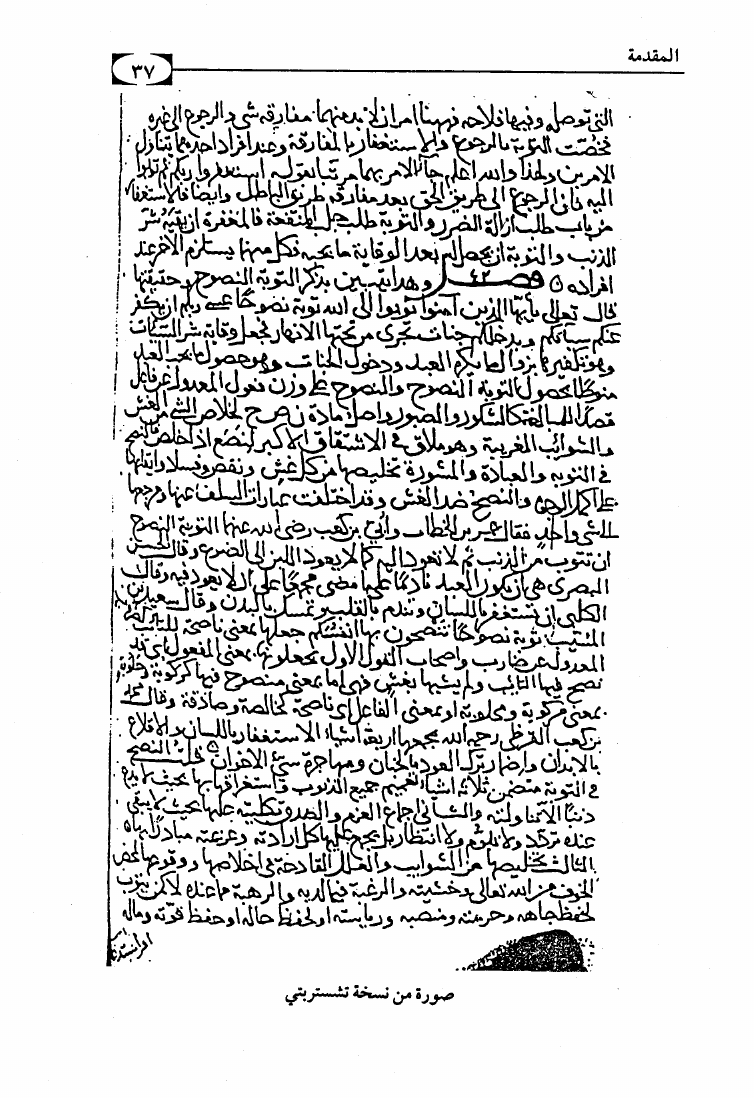 المقدمة
٣٧
التي توصل وفيها فلاحه فههنا امران لا بد منهما مفارقة شي والرجوع الى غيره
فخصت التوبة بالرجوع والاستغفار بالمفارقة وعند افراد احدهما يتناول
الامرين ولهذا والله اعلم جا الامر بهما مرتبا بقوله استغفروا ربكم ثم توبوا
اليه فانه الرجوع الى طريق الحق بعد مفارقة طريق الباطل وايضا فالاستغفار
من باب طلب ازالة الضرر والتوبة طلب جلب المنفعة فالمغفرة ان يقيه شر
الذنب والتوبة ان يحصل له بعد الوقاية ما يحبه فكل منهما يستلزم الاخر عند
افراده فصل وهذا يتبين بذكر التوبة النصوح وحقيقتها
قال تعالى يا أيها الذين آمنوا توبوا الى الله توبة نصوحا عسى ربكم ان يكفر
عنكم سياتكم ويدخلكم جنات تجري من تحتها الانهار فجعل وقاية شر السيئات
وهو تكفيرها بزوال ما يكره العبد ودخول الجنات وهو حصول ما يحب العبد
منوطا بحصول التوبة النصوح والنصوح على وزن فعول المعدول عن فاعل
قصدا للمبالغة كالشكور والصبور واصل مادة ن ص ح لخلاص الشي من الغش
والشوائب الغريبة وهو ملاق في الاشتقاق الاكبر لنصع اذا خلص فالنصح
في التوبة والعبادة والمشورة تخليصها من كل غش ونقص وفساد وايقاعها
على اكمل الوجوه والنصح ضد الغش وقد اختلفت عبارات السلف عنها ومرجعها
الى شي واحد فقال عمر بن الخطاب وأبي بن كعب رضي الله عنهما التوبة النصوح
ان يتوب من الذنب ثم لا يعود اليه كما لا يعود اللبن الى الضرع وقال الحسن
البصري هي ان يكون العبد نادما على ما مضى مجمعا على ان لا يعود فيه وقال
الكلبي ان يستغفر باللسان ويندم بالقلب ويمسك بالبدن وقال سعيد بن
المسيب توبة نصوحا تنصحون بها انفسكم جعلها بمعنى ناصحة للتائب
المعدولة عن ضارب واصحاب القول الاول يجعلونها بمعنى المفعول اي قد
نصح فيها التايب ولم يشبها بغش فهي اما بمعنى منصوح فيها كركوبة وحلوبة
بمعنى مركوبة ومحلوبة او بمعنى الفاعل اي ناصحة كخالصة وصادقة وقال محمد
بن كعب القرظي رحمه الله يجمعها اربعة اشيا الاستغفار باللسان والاقلاع
بالابدان واضمار ترك العود بالجنان ومهاجرة سيئ الاخوان قلت النصح
في التوبة يتضمن ثلاثة اشيا تعميم جميع الذنوب واستغراقها بها بحيث لا يدع
ذنبا الا تناولته والثاني اجماع العزم والصدق بكليته عليها بحيث لا يبقى
عنده تردد ولا تلوم ولا انتظار بل يجمع عليها كل ارادته وعزيمته مبادرا بها
الثالث تخليصها من الشوايب والعلل القادحة في اخلاصها ووقوعها لمحض
الخوف من الله تعالى وخشيته والرغبة فيما لديه والرهبة مما عنده لا كمن يتوب
لحفظ جاهه وحرمته ومنصبه ورياسته او لحفظ حاله او حفظ قوته وماله
صورة من نسخة تشستربتي